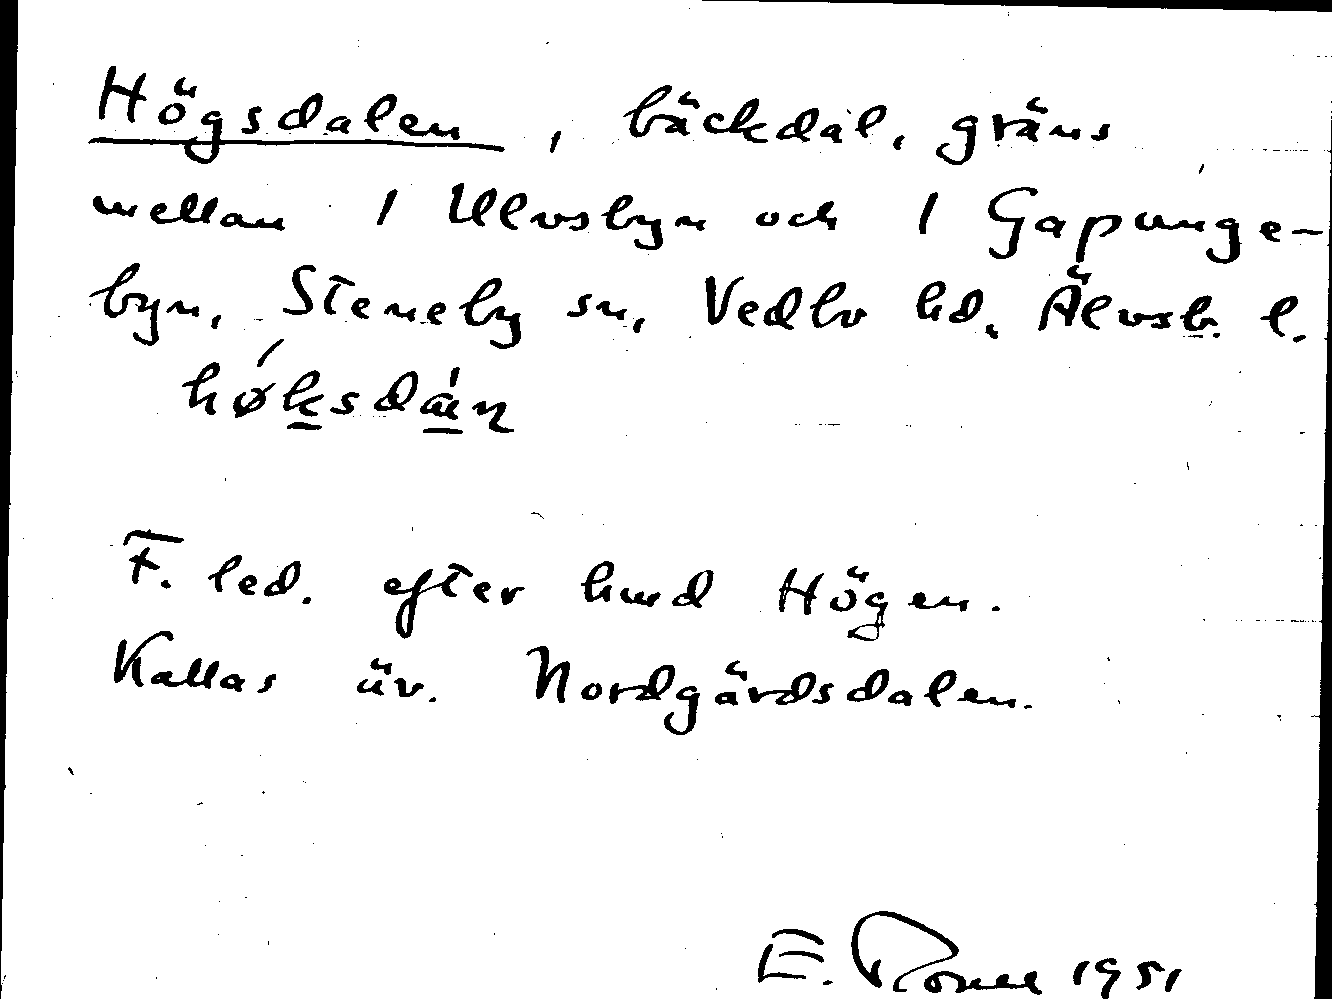 Högsdalen, bäckdal, gräns
mellan 1 Ulvsbyn och 1 Gapunge-
byn, Steneby sn, Vedbo hd, Älvsb. l.
F. led. efter hmd Högen.
Kallas äv. Nordgärdsdalen.
E. 1951